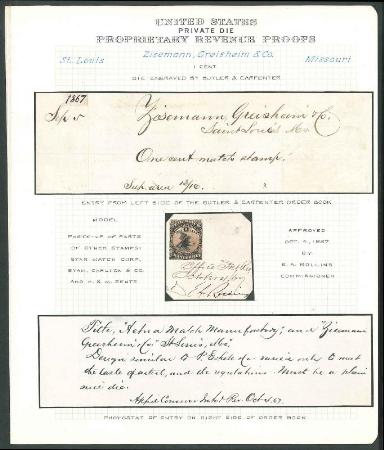 UNITED STATES
PRIVATE DIE
PROPRIETARY REVENUE PROOFS
St. Louis
Zisemann, Greisheim & Co.
Missouri
1 CENT
DIE ENGRAVED BY BUTLER & CARPENTER
1867
Sep 5
Zisemann Greisheim & Co
Saint Louis Mo.
One cent match stamp.
ENTRY FROM LEFT SIDE OF THE BUTLER & CARPENTER ORDER BOOK
MODEL
PASTE-UP OF PARTS
OF OTHER STAMPS:
STAR MATCH CORP,
BYAM, CARLTON & CO.
AND H. & M. BENTZ
APPROVED
OCT. 4, 1867
BY
E. A. ROLLINS
COMMISSIONER
Title, "Aetna Match Manufactory," and "Zisemann
Greisheim & Co St Louis, Mo"
Design similar to P. Eichele & Co
the taste of artist, and the regulations. Must be a plain
die.
Oct 4, 67.
PHOTOSTAT OF ENTRY ON RIGHT SIDE OF ORDER BOOK